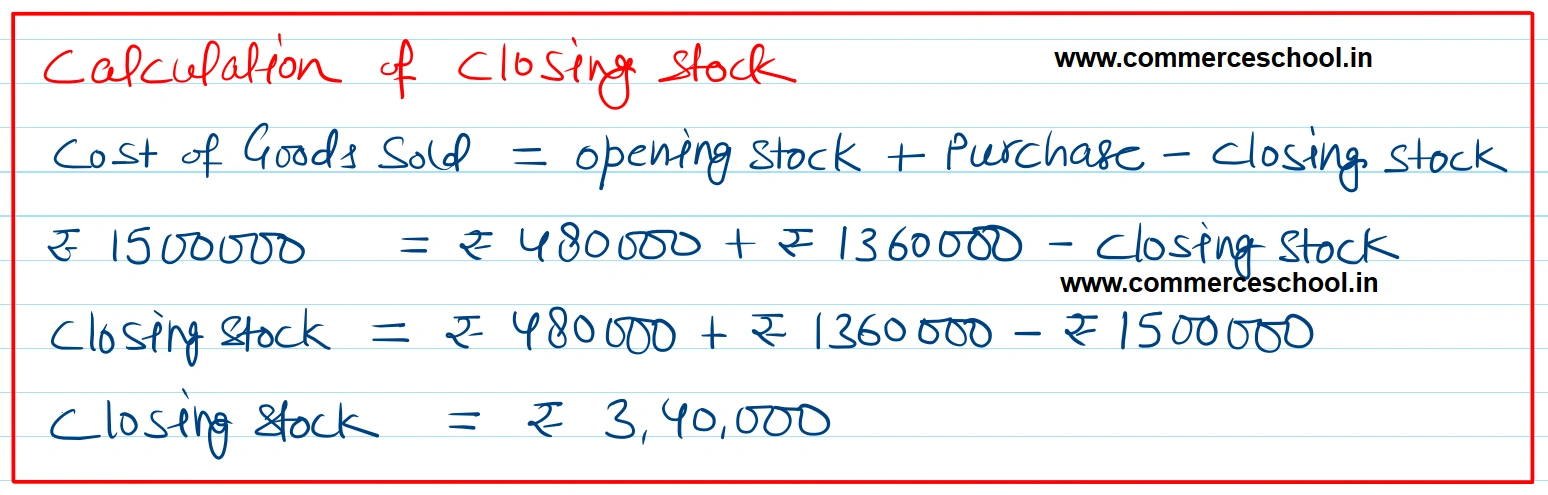 Calculation of Closing Stock
www.commerceschool.in
Cost of Goods Sold = Opening Stock + Purchase - Closing Stock
₹ 1500000 = ₹ 480000 + ₹ 1360000 - Closing Stock
www.commerceschool.in
Closing Stock = ₹ 480000 + ₹ 1360000 - ₹ 1500000
Closing Stock = ₹ 3,40,000